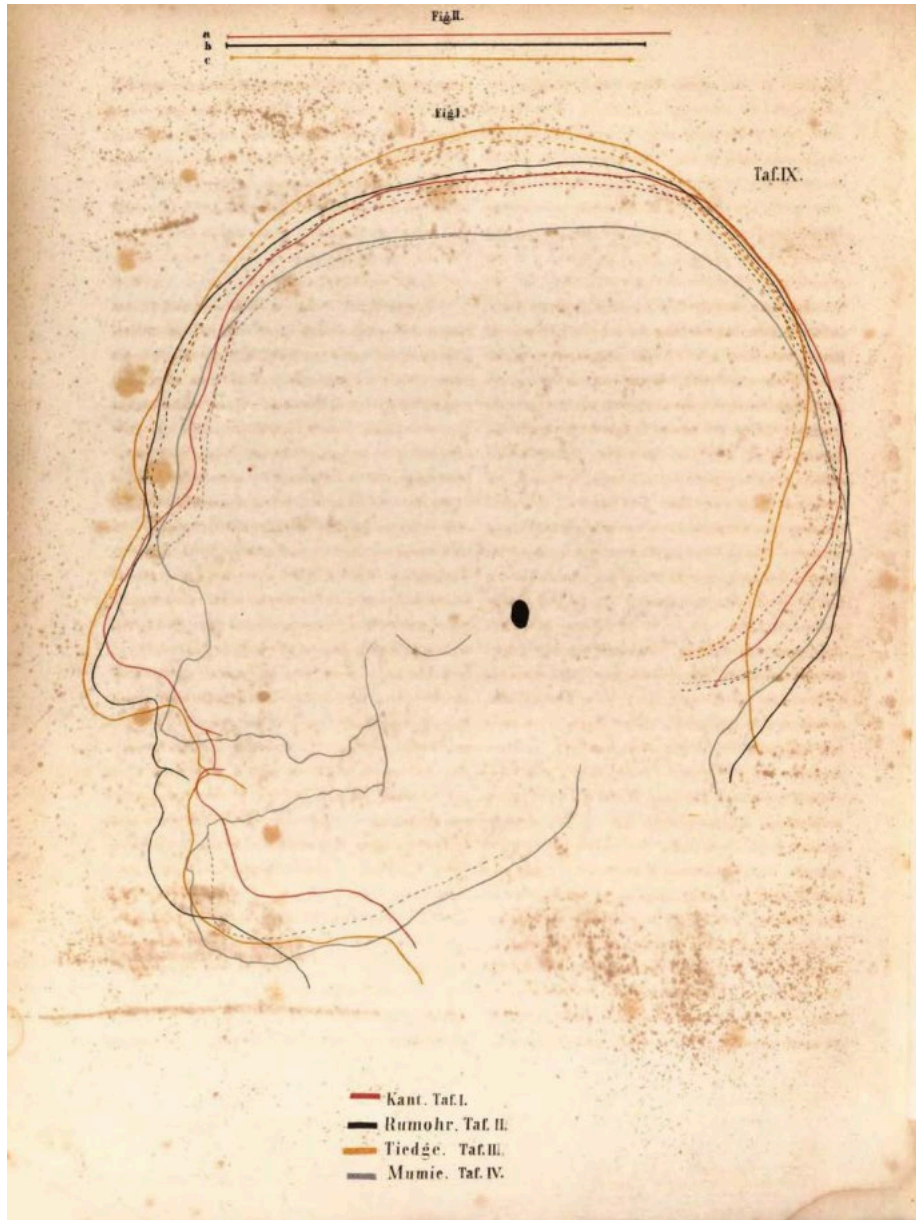 Fig II.
a
b
c
Fig I.
Taf. IX.
Kant. Taf. I.
Rumohr. Taf. II.
Tiedge. Taf. III.
Mumie. Taf. IV.